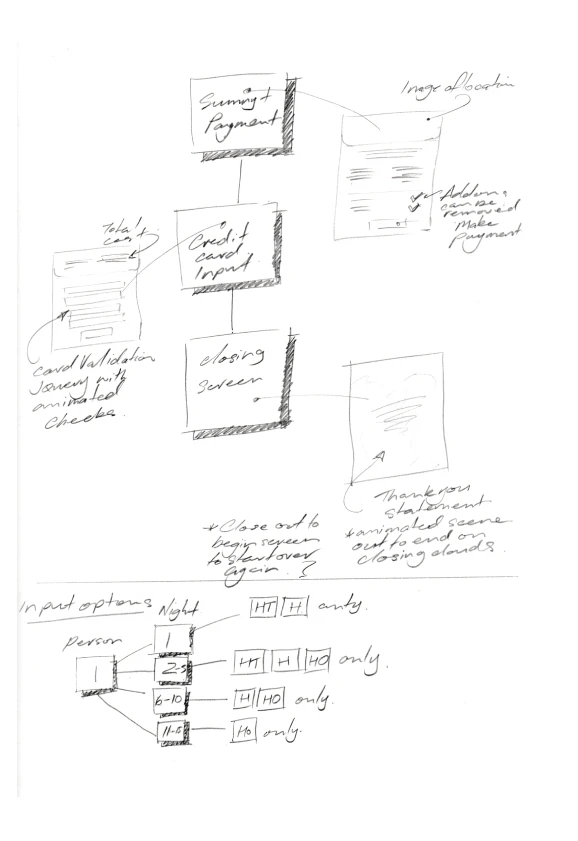 Summary +
Payment
Image of location
Addons
can be
removed
Make
Payment
Total
cost
Credit
card
Input
card Validation
Jquery with
animated
checks.
closing
screen
Thank you
statement
*animated scene
out to end on
closing clouds.
*Close out to
begin screen
to start over
again. ?
Input options
Night
Person
1
1
HT H only.
2-5
HT H HO only.
6-10
H HO only.
11-15
Ho only.